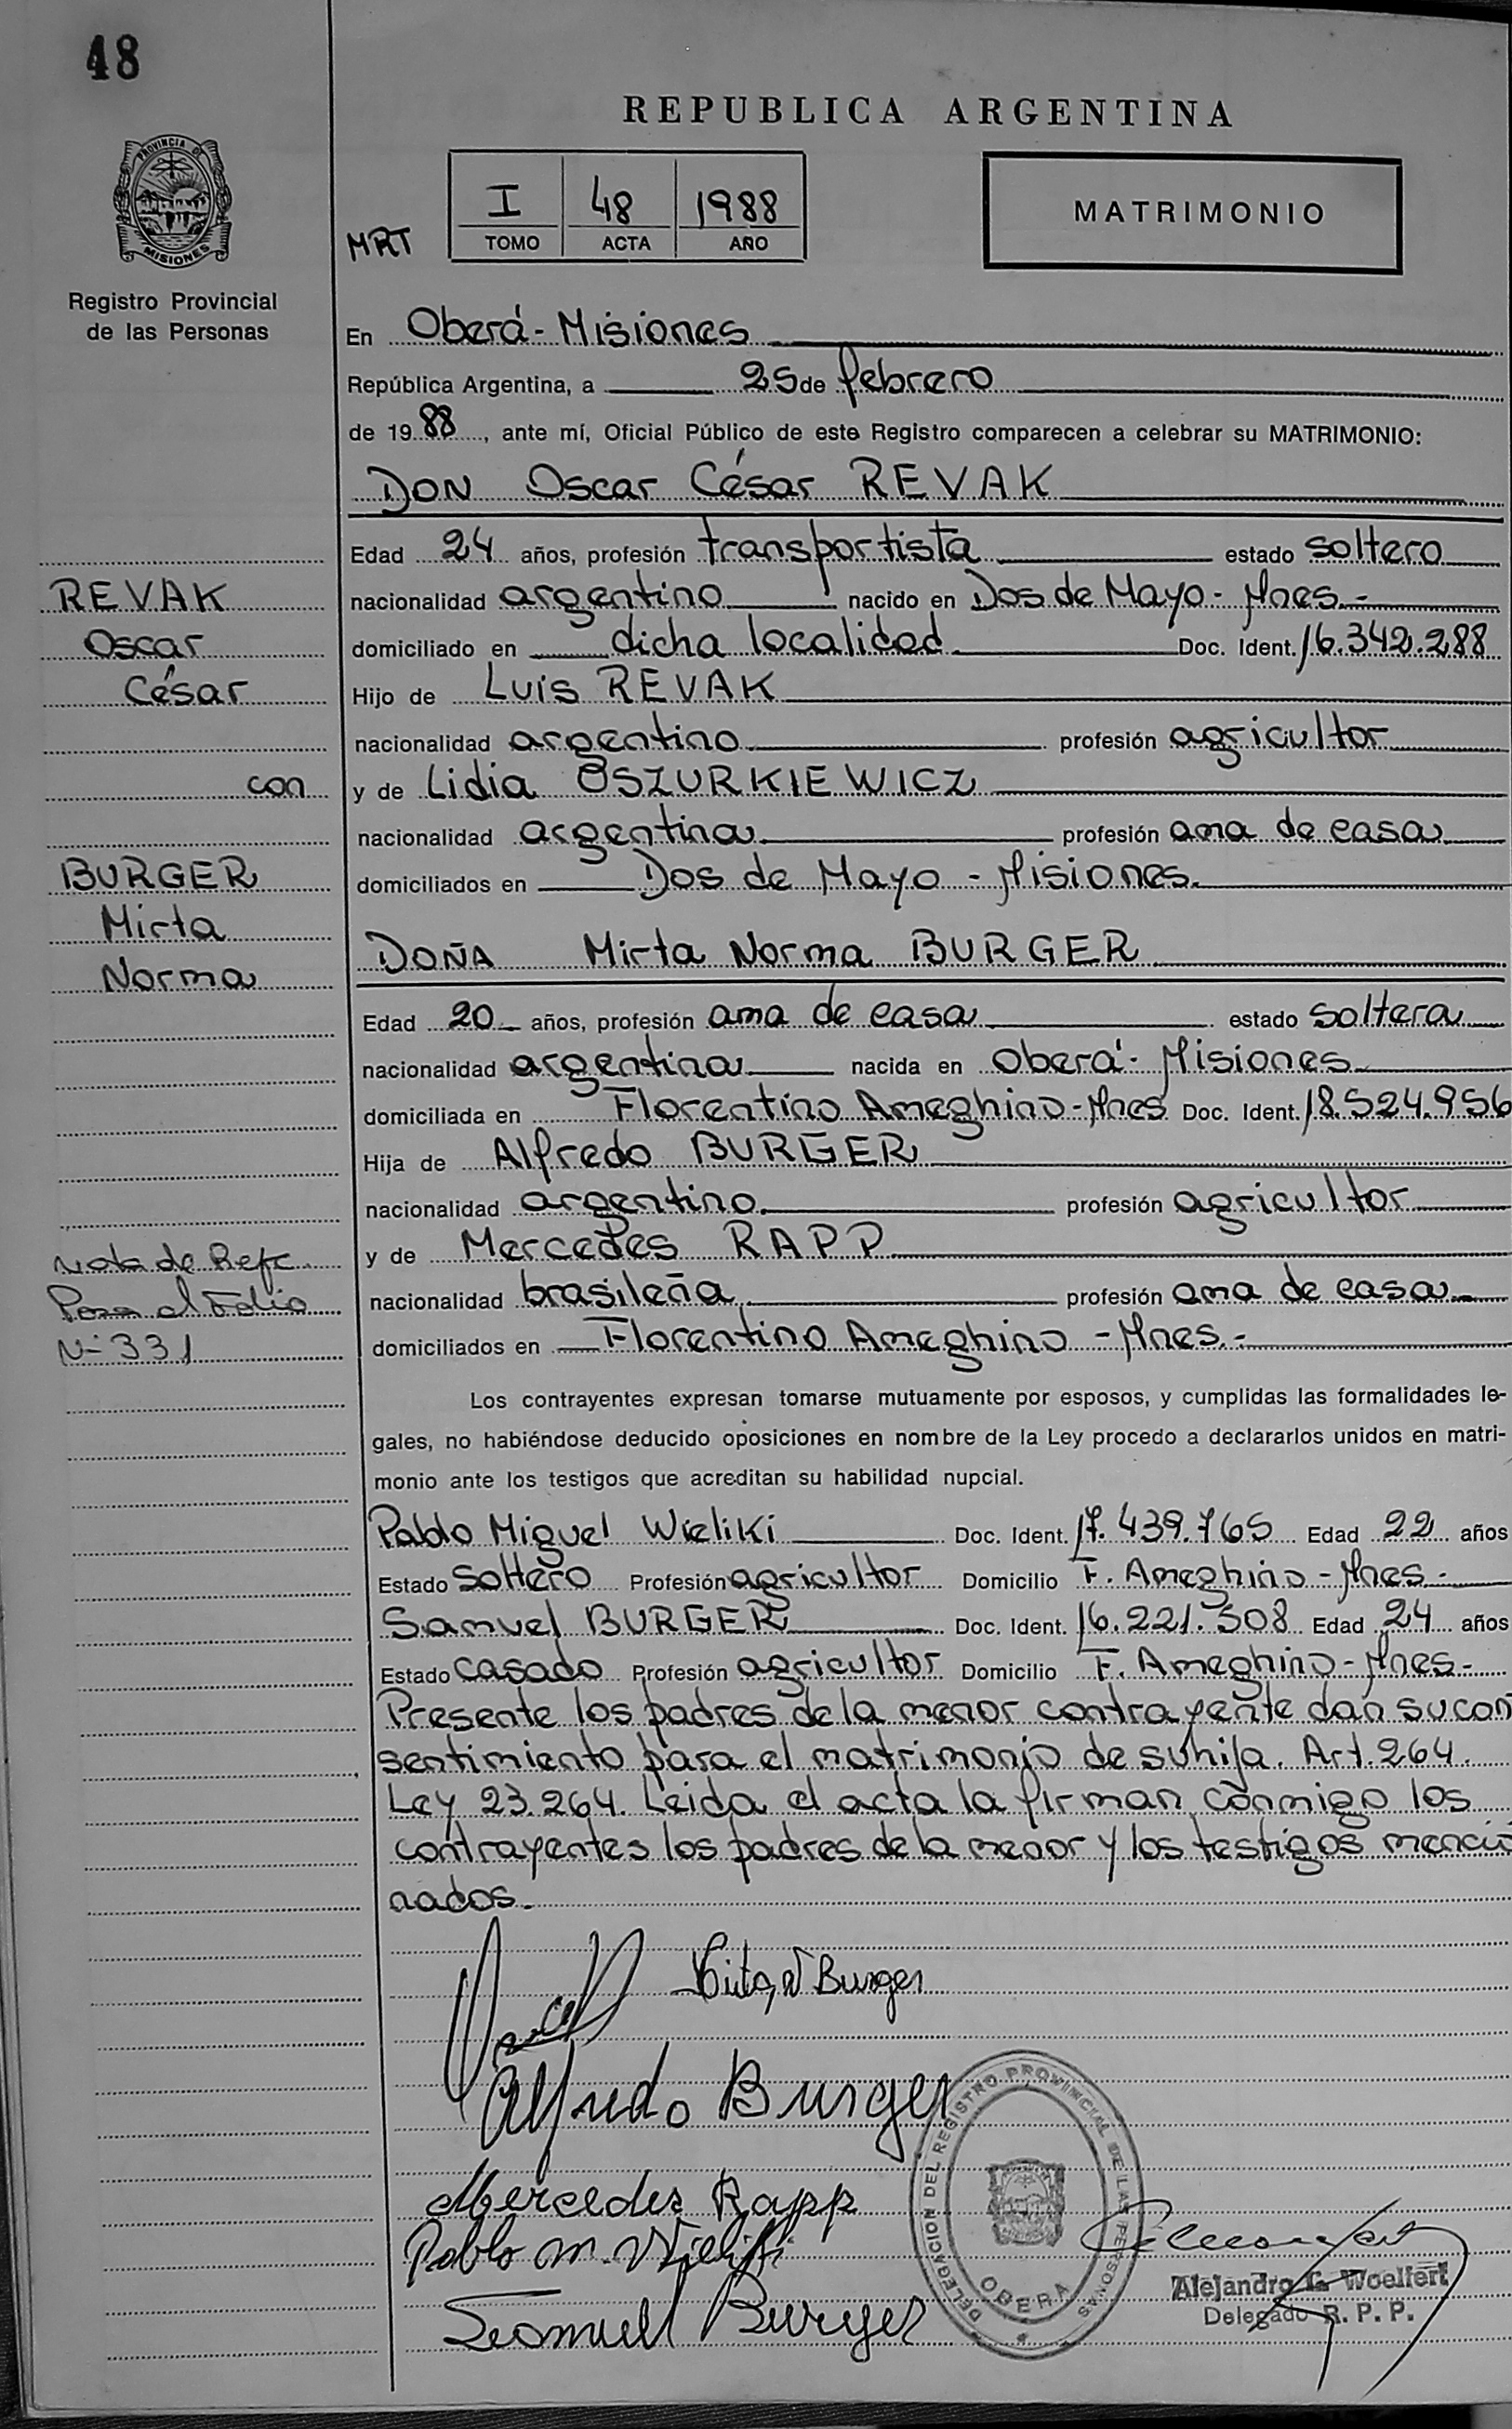 48
REPUBLICA ARGENTINA
PROVINCIA DE
MISIONES
Registro Provincial
de las Personas
MRT
I 48 1988
TOMO ACTA AÑO
MATRIMONIO
En Oberá - Misiones
República Argentina, a 25 de febrero
de 1988, ante mí, Oficial Público de este Registro comparecen a celebrar su MATRIMONIO:
DON Oscar César REVAK
Edad 24 años, profesión transportista estado soltero
nacionalidad argentino nacido en Dos de Mayo - Mnes.-
domiciliado en dicha localidad Doc. Ident. 16.342.288
Hijo de Luis REVAK
nacionalidad argentino profesión agricultor
y de Lidia OSZURKIEWICZ
nacionalidad argentina profesión ama de casa
domiciliados en Dos de Mayo - Misiones.
DOÑA Mirta Norma BURGER
Edad 20 años, profesión ama de casa estado soltera
nacionalidad argentina nacida en Oberá - Misiones
domiciliada en Florentino Ameghino - Mnes Doc. Ident. 18.524.956
Hija de Alfredo BURGER
nacionalidad argentino profesión agricultor
y de Mercedes RAPP
nacionalidad brasileña profesión ama de casa
domiciliados en Florentino Ameghino - Mnes.-
REVAK
Oscar
César
con
BURGER
Mirta
Norma
Nota de Refc.
Pasa al Folio
Nº 331
Los contrayentes expresan tomarse mutuamente por esposos, y cumplidas las formalidades le-
gales, no habiéndose deducido oposiciones en nombre de la Ley procedo a declararlos unidos en matri-
monio ante los testigos que acreditan su habilidad nupcial.
Pablo Miguel Wieliki Doc. Ident. 17.439.765 Edad 22 años
Estado Soltero Profesión agricultor Domicilio F. Ameghino - Mnes.-
Samuel BURGER Doc. Ident. 16.221.508 Edad 24 años
Estado casado Profesión agricultor Domicilio F. Ameghino - Mnes-
Presente los padres de la menor contrayente dan su con
sentimiento para el matrimonio de su hija. Art. 264.
Ley 23.264. Leida el acta la firman conmigo los
contrayentes los padres de la menor y los testigos mencio
nados.-
Burger
Alfredo Burger
Mercedes Rapp
Pablo M. Wieliki
Samuel Burger
DELEGACION DEL REGISTRO PROVINCIAL DE LAS PERSONAS
OBERA
Alejandro Woelfert
Delegado R. P. P.